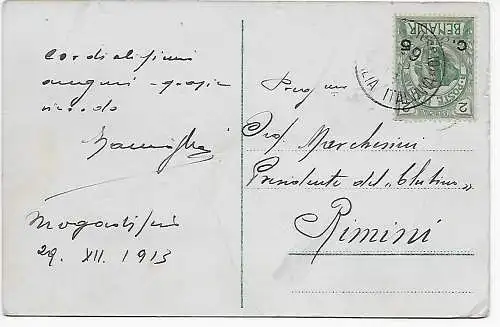 Cordialissimi
auguri - grazie
ricordo
Mogadiscio
29. XII. 1913
Preg.mo
Prof. Marchesini
Presidente del "Clubino"
Rimini
BENADIR
C. 5
2
BESE
ITALIANA